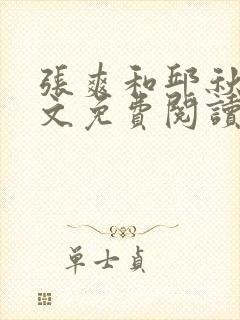 張爽和邱秋
文免費閱讀
單士貞